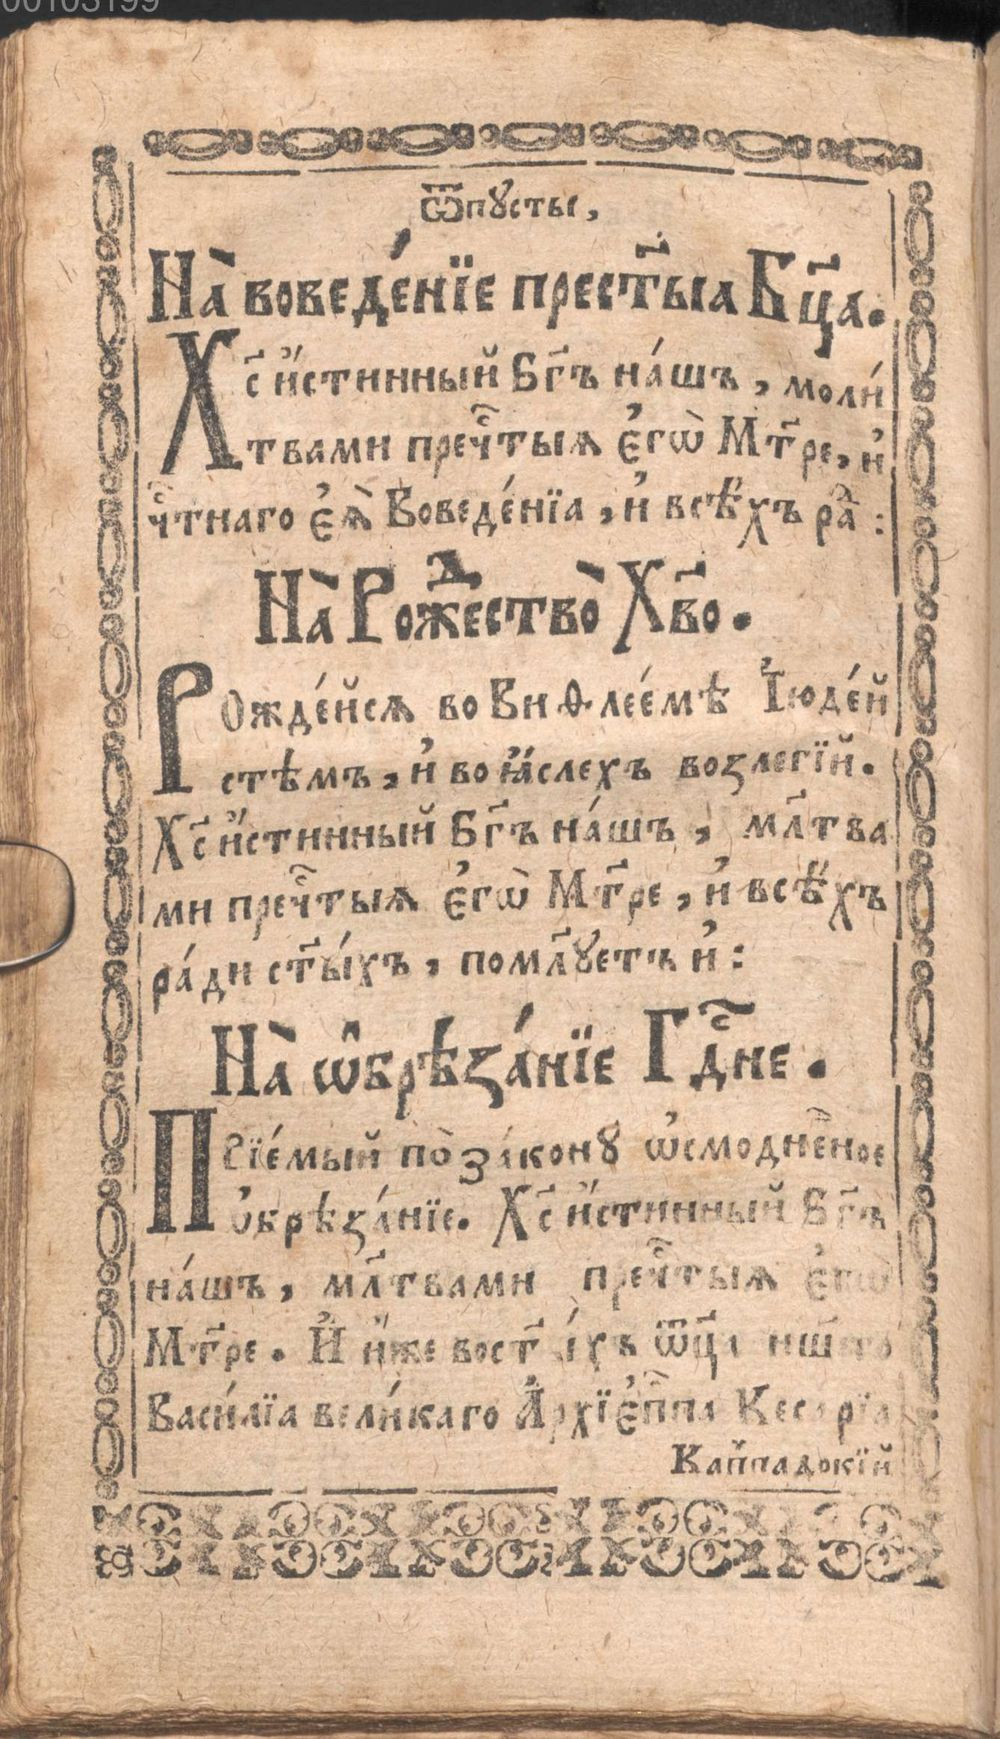 00103199
Ѿпꙋсты,
На̀ воведе́нїе прест҃ыꙗ Бц҃а.
Хс҃ и҆́стинный Бг҃ъ на́шъ, моли́
твами преч҃тыѧ є҆гѡ̀ Мт҃ре, и҆
ч҃тнаго є҆ѧ̀ Воведе́нїа, и҆ всѣ́хъ ра҃:
На̀ Рожⷣество̀ Хв҃о.
Рожде́йсѧ во Виѳлее́мѣ І҆юде́й
стѣмъ, и҆ во ꙗ҆́слехъ возлегїй.
Хс҃ и҆́стинный Бг҃ъ на́шъ, мл҃тва
ми преч҃тыѧ є҆гѡ̀ Мт҃ре, и҆ всѣ́хъ
ра́ди ст҃ы́хъ, помл҃ꙋетъ и҆:
На̀ ѡ҆брѣза́нїе Гдⷭ҇не.
Прїе́мый по̀ зако́нꙋ ѡ҆смодне́ное
ѻ҆брѣза́нїе. Хс҃ и҆́стинный Бг҃ъ
на́шъ, мл҃твами преч҃тыѧ є҆гѡ̀
Мт҃ре. И҆ и҆́же во ст҃ы́хъ ѿц҃а нш҃его
Васи́лїа вели́каго А҆рхїє҆п҃па Кесарїа
Каппадокїй